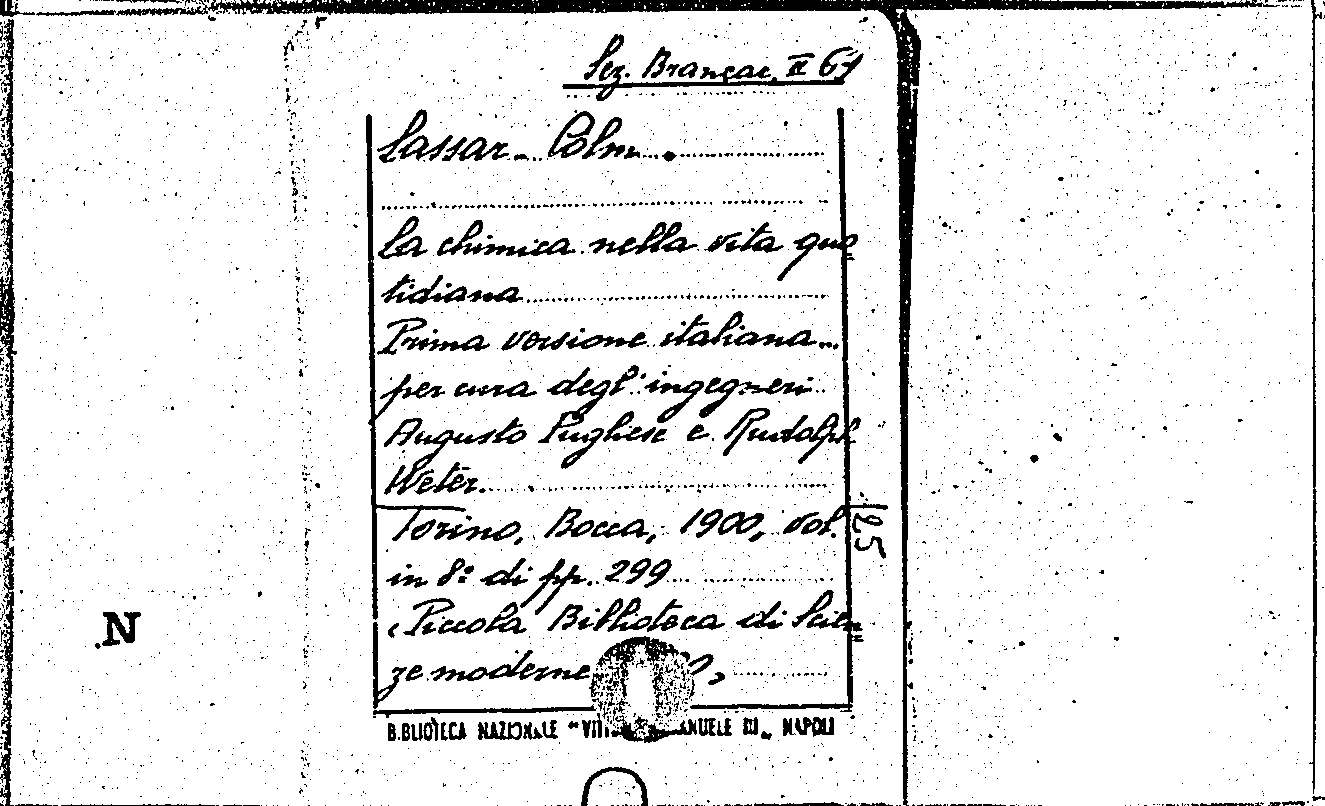 Sez. Brancac. II 61
Lassar-Cohn.
La chimica nella vita quo=
tidiana
Prima versione italiana...
per cura degl' ingegneri
Augusto Pugliese e Rudolph
Weter.
Torino, Bocca, 1900, vol.
in 8º di pp. 299
(Piccola Biblioteca di Scien=
ze moderne
125
N
BIBLIOTECA NAZIONALE "VITT EMANUELE III" NAPOLI